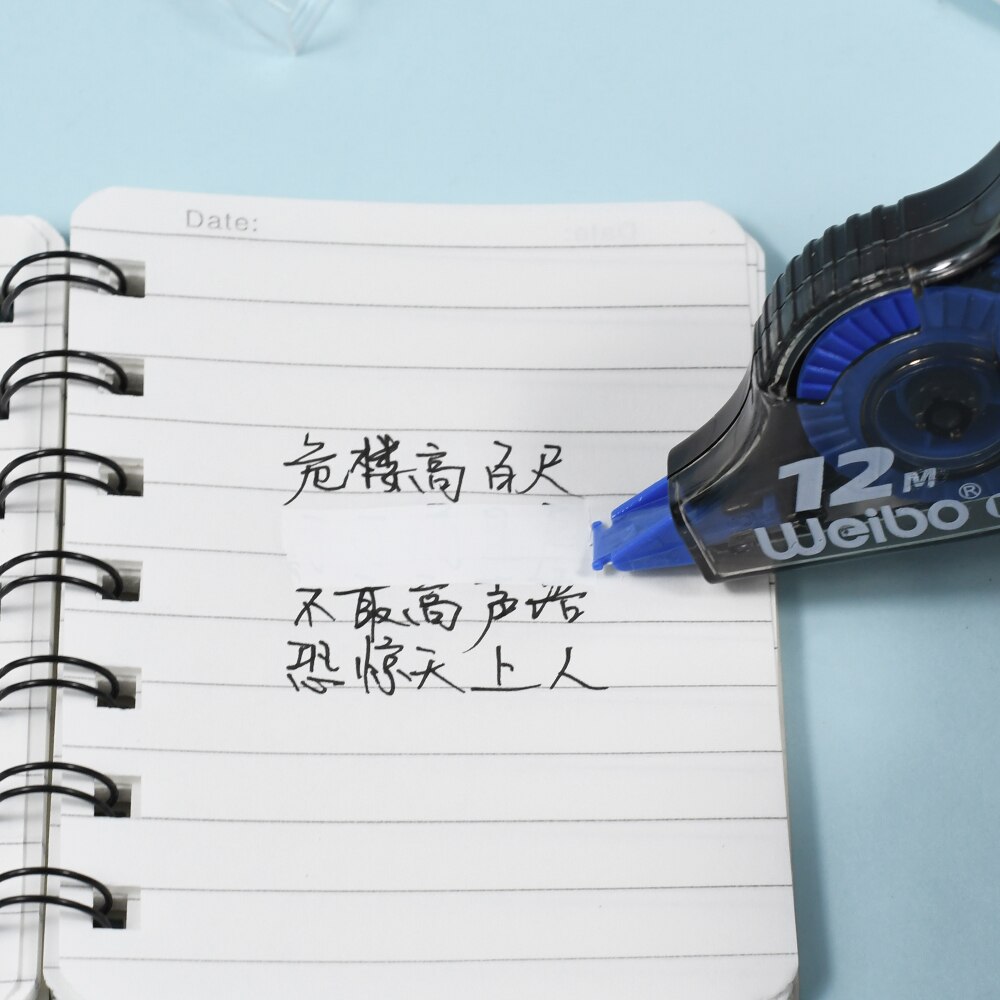 Date:
危楼高百尺
不取高声语
恐惊天上人
12M
Weibo®